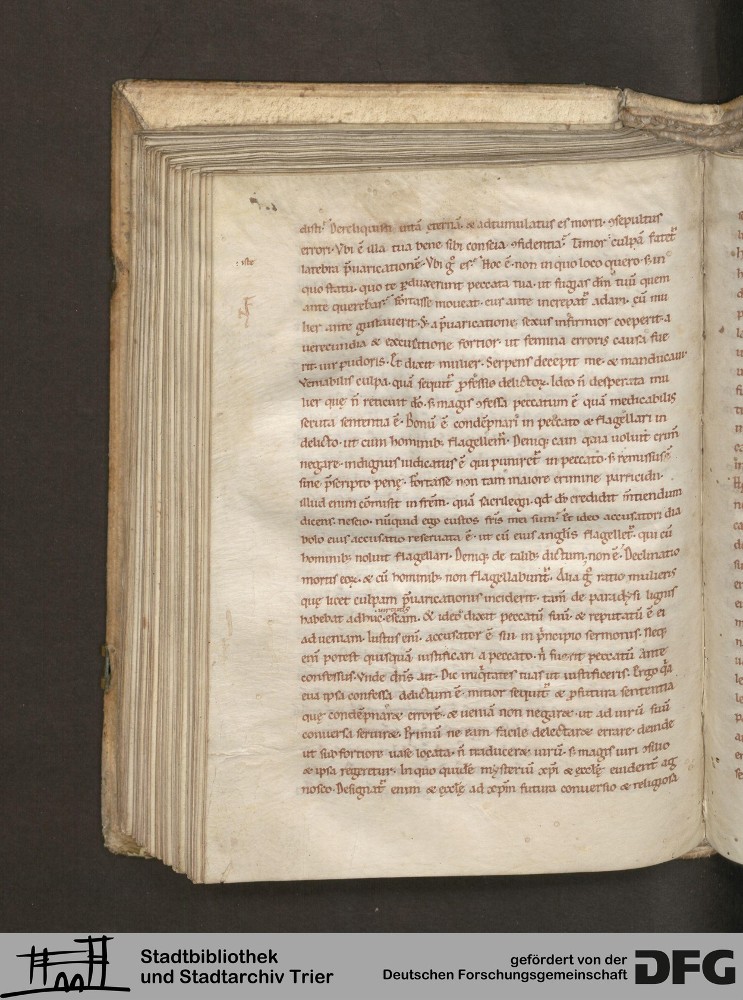 disti. Dereliquisti uitā ęternā. & adtumulatus es morti. ꝯsepultus
errori. Vbi ē illa tua bene sibi conscia ꝯfidentia? Timor culpā fatet᷑
: iste
latebra p̄uaricationē. Vbi gͦ es? Hoc ē. non in quo loco quero. sʒ in
quo statu. quo te ꝑduxerunt peccata tua. ut fugias dm̄ tuū quem
ante querebas? Fortasse moueat. cur ante increpat᷑ adam. cū mu
lier ante gustauerit. Sʒ a p̄uaricatione sexus infirmior coeperit. a
uerecundia & excusatione fortior. ut femina erroris causa fue
rit. uir pudoris. Et dixit mulier. Serpens decepit me. & manducaui.
Veniabilis culpa. quā sequit᷑ ꝓfessio delictoꝝ. Ideo n̄ desperata mu
lier quę n̄ reticuit dō. sʒ magis ꝯfessa peccatum ē quā medicabilis
secuta sententia ē. Bonū ē condēpnari in peccato & flagellari in
delicto. ut cum hominibꝫ flagellem᷑. Deniqꝫ cain quia uoluit crim̄
negare. indignus iudicatus ē qui puniret᷑ in peccato. sʒ remissus ē
sine p̄scripto penę. Fortasse non tam maiore crimine parricidii.
illud enim cōmisit in frēm. quā sacrilegii. qđ dō credidit m̄tiendum
dicens. nescio. nūquid ego custos fr̄is mei sum? Et ideo accusatori dia
bolo eius accusatio reseruata ē. ut cū eius anglis flagellet᷑. qui cū
hominibꝫ noluit flagellari. Deniqꝫ de talibꝫ dictum, non ē. Declinatio
mortis eoꝝ. & cū hominibꝫ non flagellabunt᷑. Alia gͦ ratio mulieris
quę licet culpam p̄uaricationis inciderit. tam̄ de paradysi lignis
habebat adhuc uirtutis escam. & ideo dixit peccatū suū. & reputatū ē ei
ad ueniam. Iustus eni. accusator ē sui in principio sermonis. Neqꝫ
enī potest quisquā iustificari a peccato. n̄ fuerit peccatū ante
confessus. Vnde dn̄s ait. Dic iniq̇tates tuas ut iustificeris. Ergo q̄a
eua ipsa confessa delictum ē. mitior sequit᷑ & ꝓfutura sententia
quę condēpnaret errorē. & ueniā non negaret. ut ad uirū suū
conuersa seruiret. Primū ne eam facile delectaret errare. deinde
ut sub fortiore uase locata. n̄ traduceret uirū. sʒ magis uiri ꝯsilio
& ipsa regeretur. In quo quidē mysteriū xp̄i & ęccłę euident᷑ ag
nosco. Designat᷑ enim & ęccłę ad xp̄m futura conuersio & religiosa
Stadtbibliothek
und Stadtarchiv Trier
gefördert von der
Deutschen Forschungsgemeinschaft
DFG